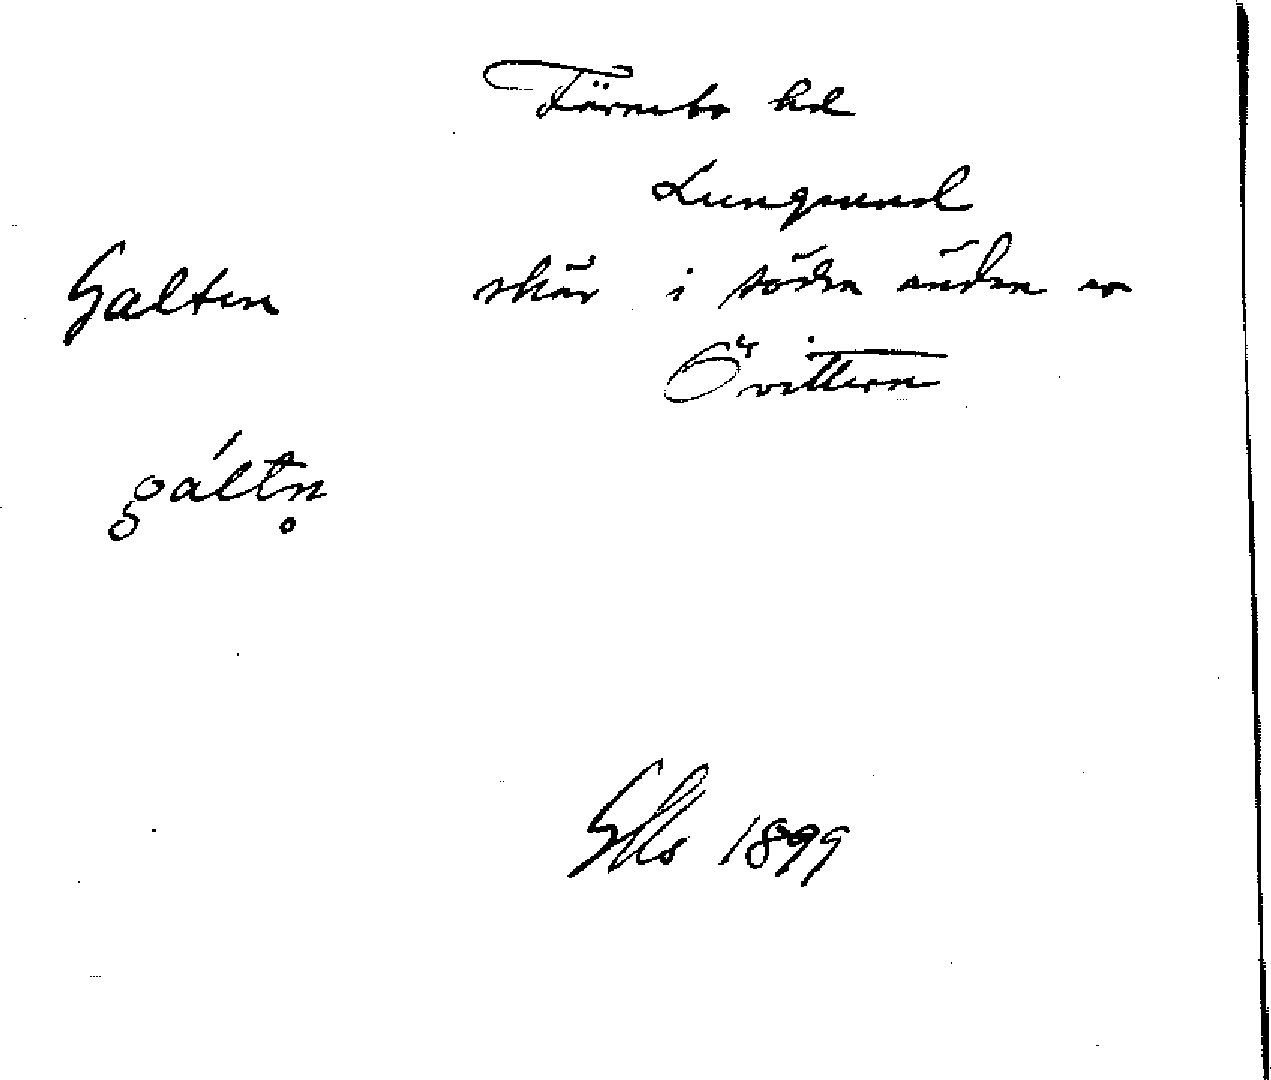 Färnebo hd
Lungsund
Galten skär i södra ändan av
Övittern
gáltn̥
1899